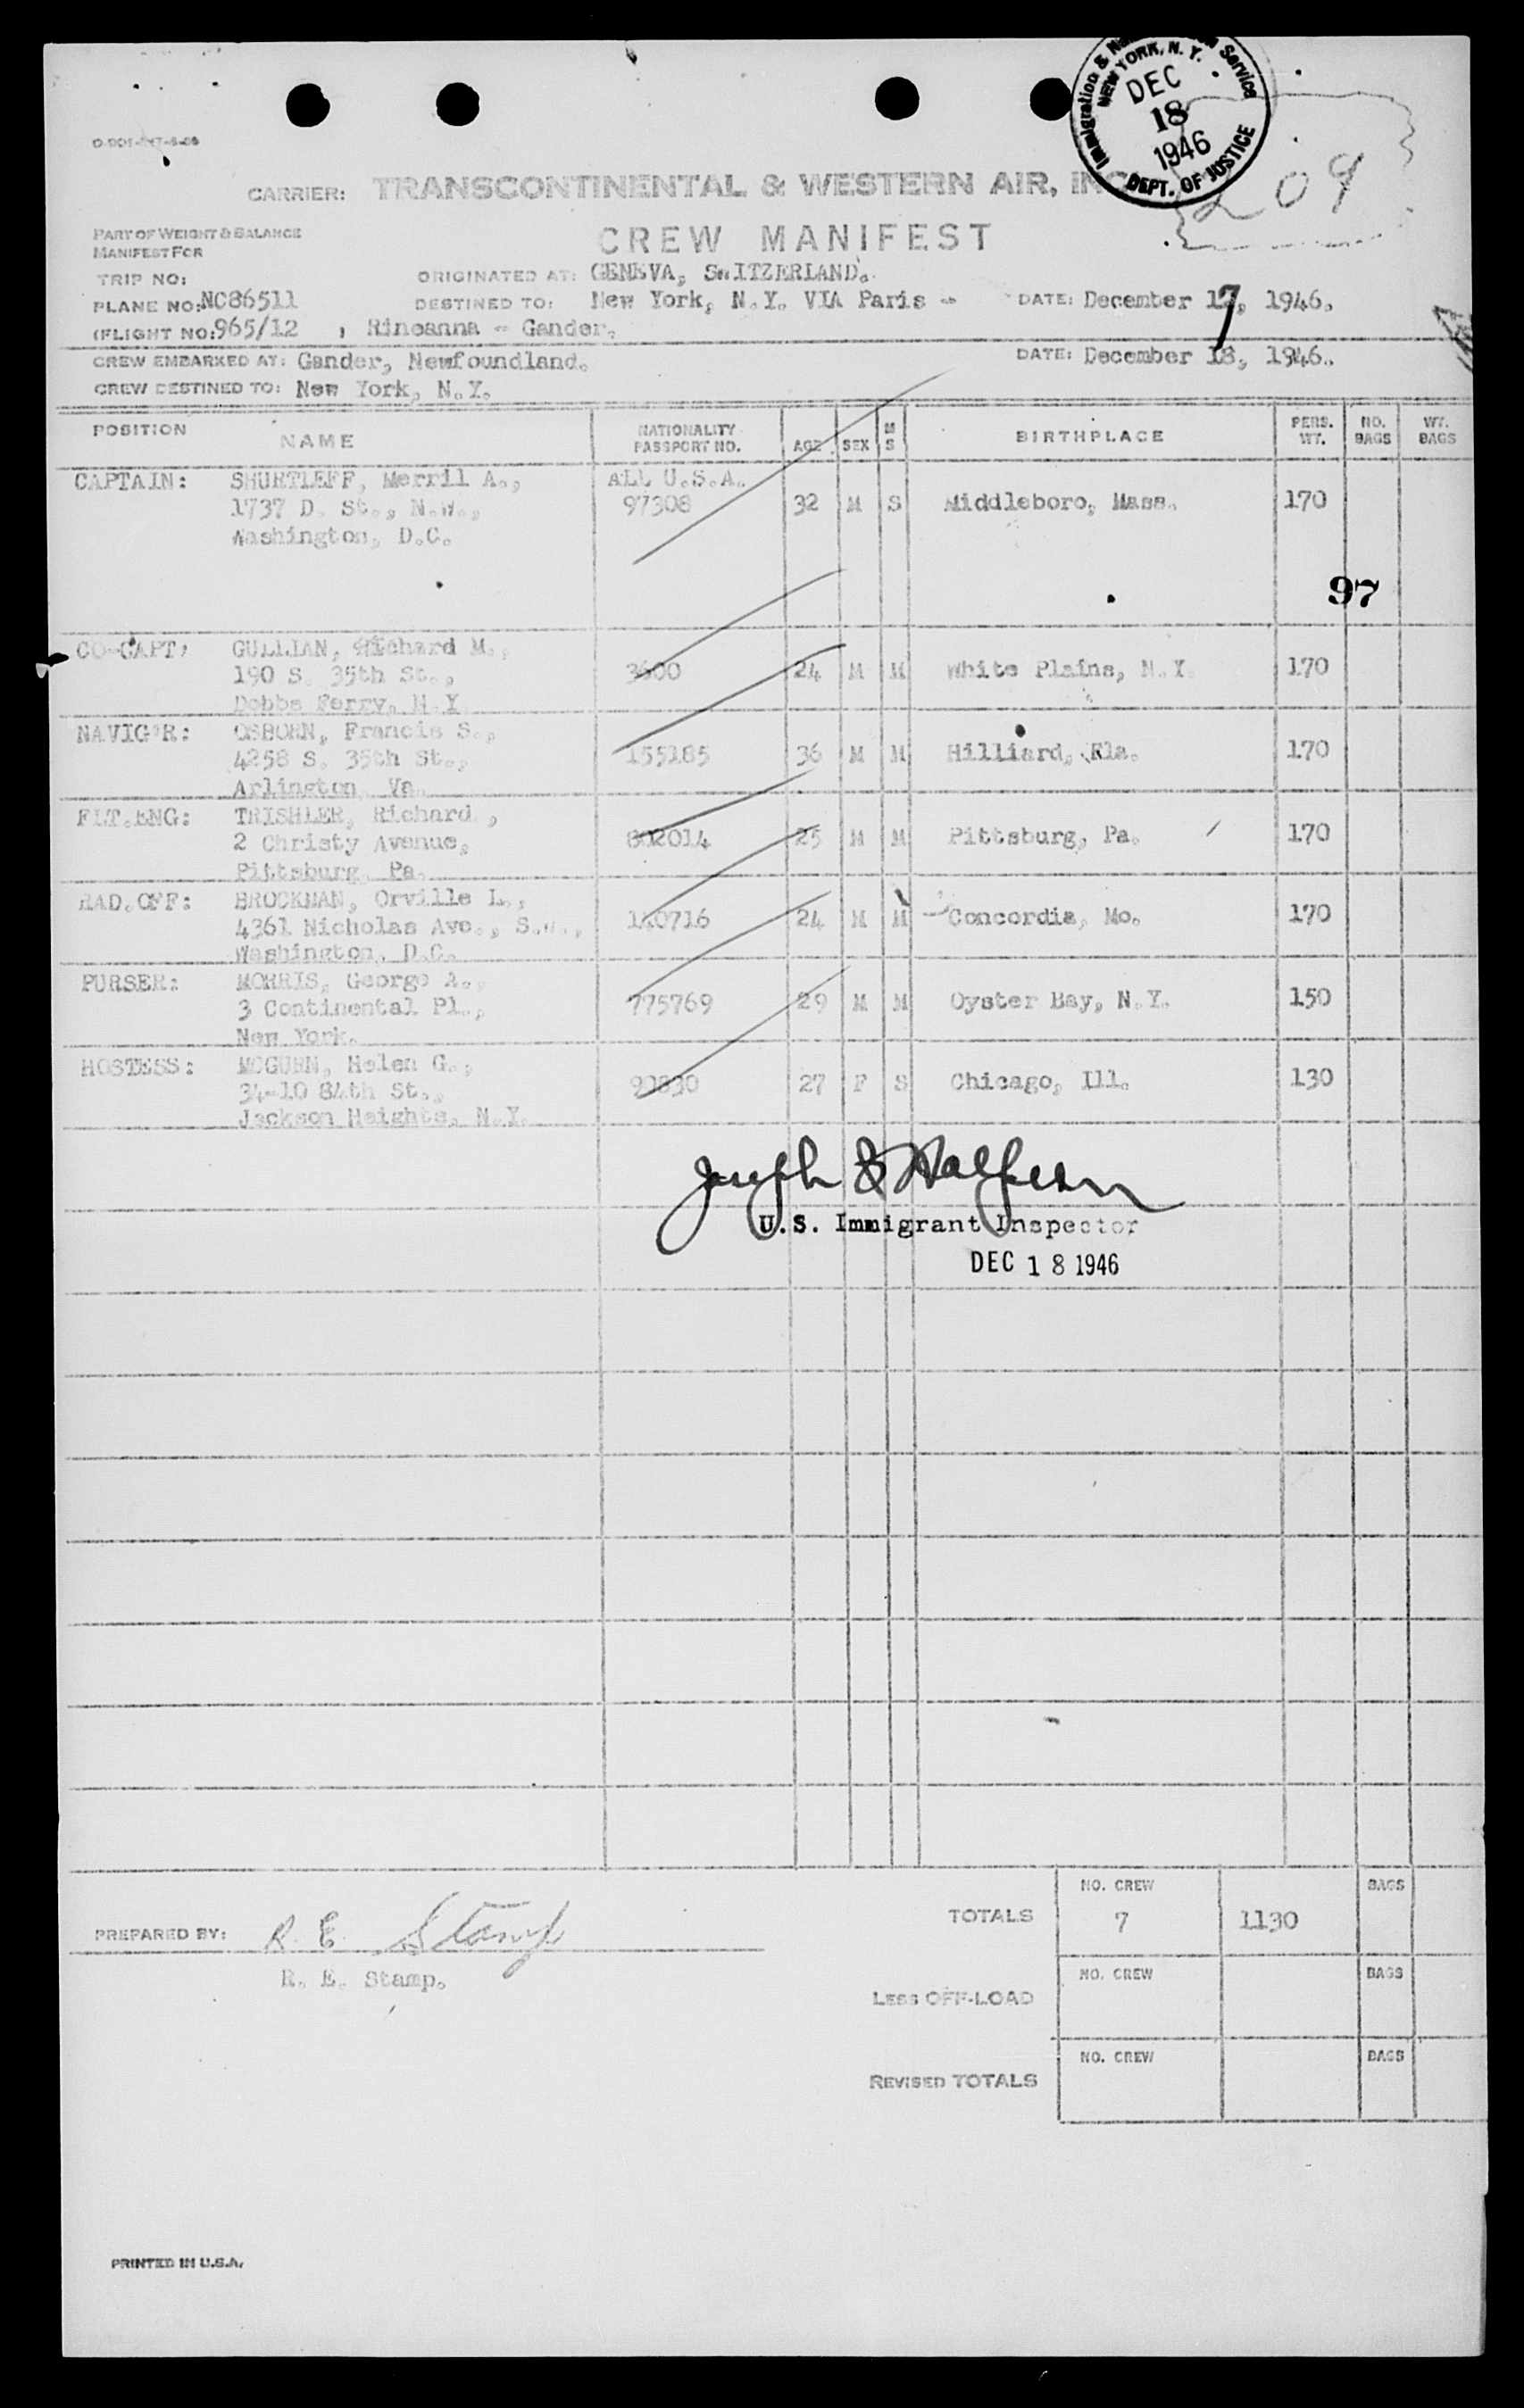 Immigration & Service
NEW YORK, N. Y.
DEC
18
1946
DEPT. OF JUSTICE
209
CARRIER: TRANSCONTINENTAL & WESTERN AIR, INC
PART OF WEIGHT & BALANCE
MANIFEST FOR
CREW MANIFEST
TRIP NO: ORIGINATED AT: GENEVA, SWITZERLAND.
PLANE NO: NC86511 DESTINED TO: New York, N.Y. VIA Paris - DATE: December 17, 1946.
(FLIGHT NO: 965/12 , Rineanna - Gander.
CREW EMBARKED AT: Gander, Newfoundland. DATE: December 18, 1946.
CREW DESTINED TO: New York, N.Y.
POSITION NAME NATIONALITY PASSPORT NO. AGE SEX M S BIRTHPLACE PERS. WT. NO. BAGS WT. BAGS
CAPTAIN: SHURTLEFF, Merril A., ALL U.S.A.
1737 D. St., N.W., 97308 32 M S Middleboro, Mass. 170
Washington, D.C.
97
CO-CAPT: GULLIAN, Richard M.,
190 S. 35th St., 3600 24 M M White Plains, N.Y. 170
Dobbs Ferry, N.Y.
NAVIG'R: OSBORN, Francis S.,
4258 S. 35th St., 155185 36 M M Hilliard, Fla. 170
Arlington, Va.
FLT.ENG: TRISHLER, Richard ,
2 Christy Avenue, 802014 25 M M Pittsburg, Pa. 170
Pittsburg, Pa.
RAD.OFF: BROCKMAN, Orville L.,
4361 Nicholas Ave., S.W., 140716 24 M M Concordia, Mo. 170
Washington, D.C.
PURSER: MORRIS, George A.,
3 Continental Pl., 775769 29 M M Oyster Bay, N.Y. 150
New York.
HOSTESS: MCGURN, Helen G.,
34-10 84th St., 92830 27 F S Chicago, Ill. 130
Jackson Heights, N.Y.
Joseph & Halpern
U.S. Immigrant Inspector
DEC 18 1946
NO. CREW BAGS
TOTALS 7 1130
PREPARED BY: R. E. Stamp
R. E. Stamp.
NO. CREW BAGS
LESS OFF-LOAD
NO. CREW BAGS
REVISED TOTALS
PRINTED IN U.S.A.